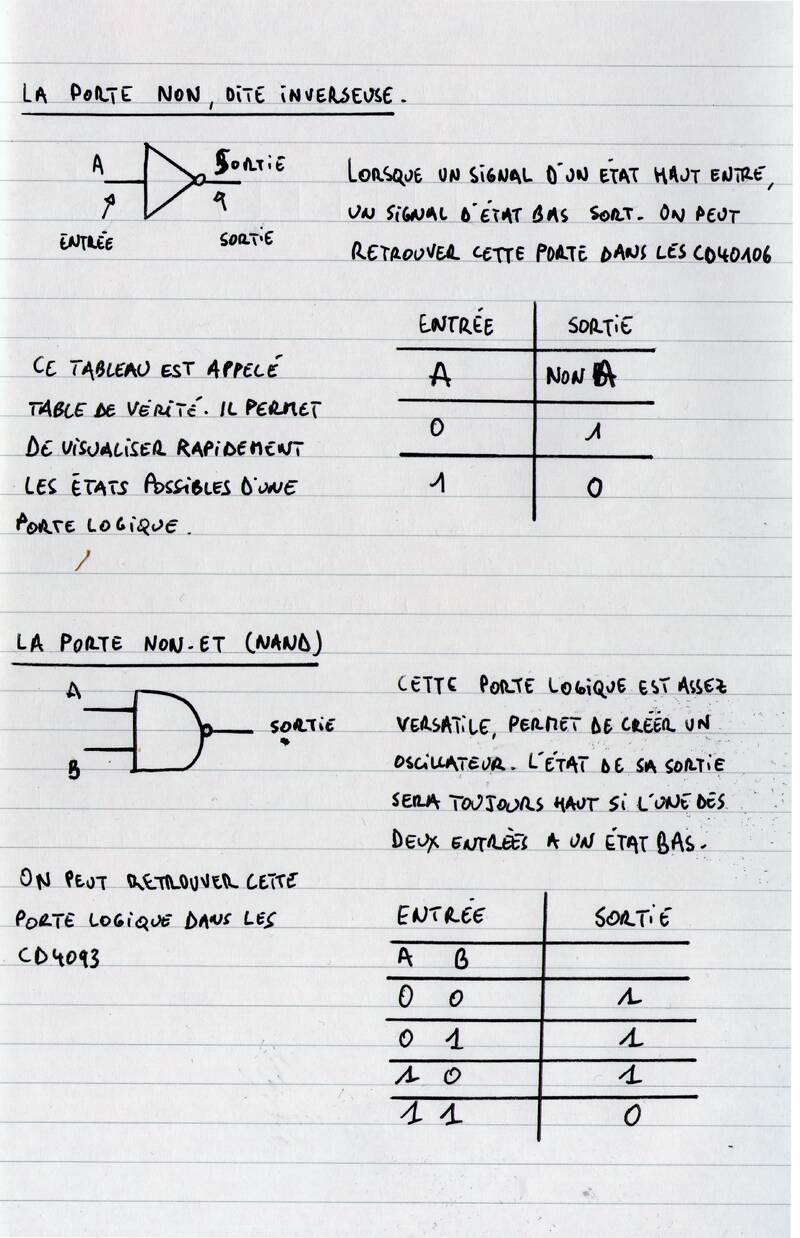 LA PORTE NON, DITE INVERSEUSE.
A SORTIE
ENTRÉE SORTIE
LORSQUE UN SIGNAL D'UN ÉTAT HAUT ENTRE,
UN SIGNAL D'ÉTAT BAS SORT. ON PEUT
RETROUVER CETTE PORTE DANS LES CD40106
CE TABLEAU EST APPELÉ
TABLE DE VÉRITÉ. IL PERMET
DE VISUALISER RAPIDEMENT
LES ÉTATS POSSIBLES D'UNE
PORTE LOGIQUE.
ENTRÉE SORTIE
A NON A
0 1
1 0
LA PORTE NON-ET (NAND)
A
SORTIE
B
CETTE PORTE LOGIQUE EST ASSEZ
VERSATILE, PERMET DE CRÉER UN
OSCILLATEUR. L'ÉTAT DE SA SORTIE
SERA TOUJOURS HAUT SI L'UNE DES
DEUX ENTRÉES A UN ÉTAT BAS.
ON PEUT RETROUVER CETTE
PORTE LOGIQUE DANS LES
CD4093
ENTRÉE SORTIE
A B
0 0 1
0 1 1
1 0 1
1 1 0